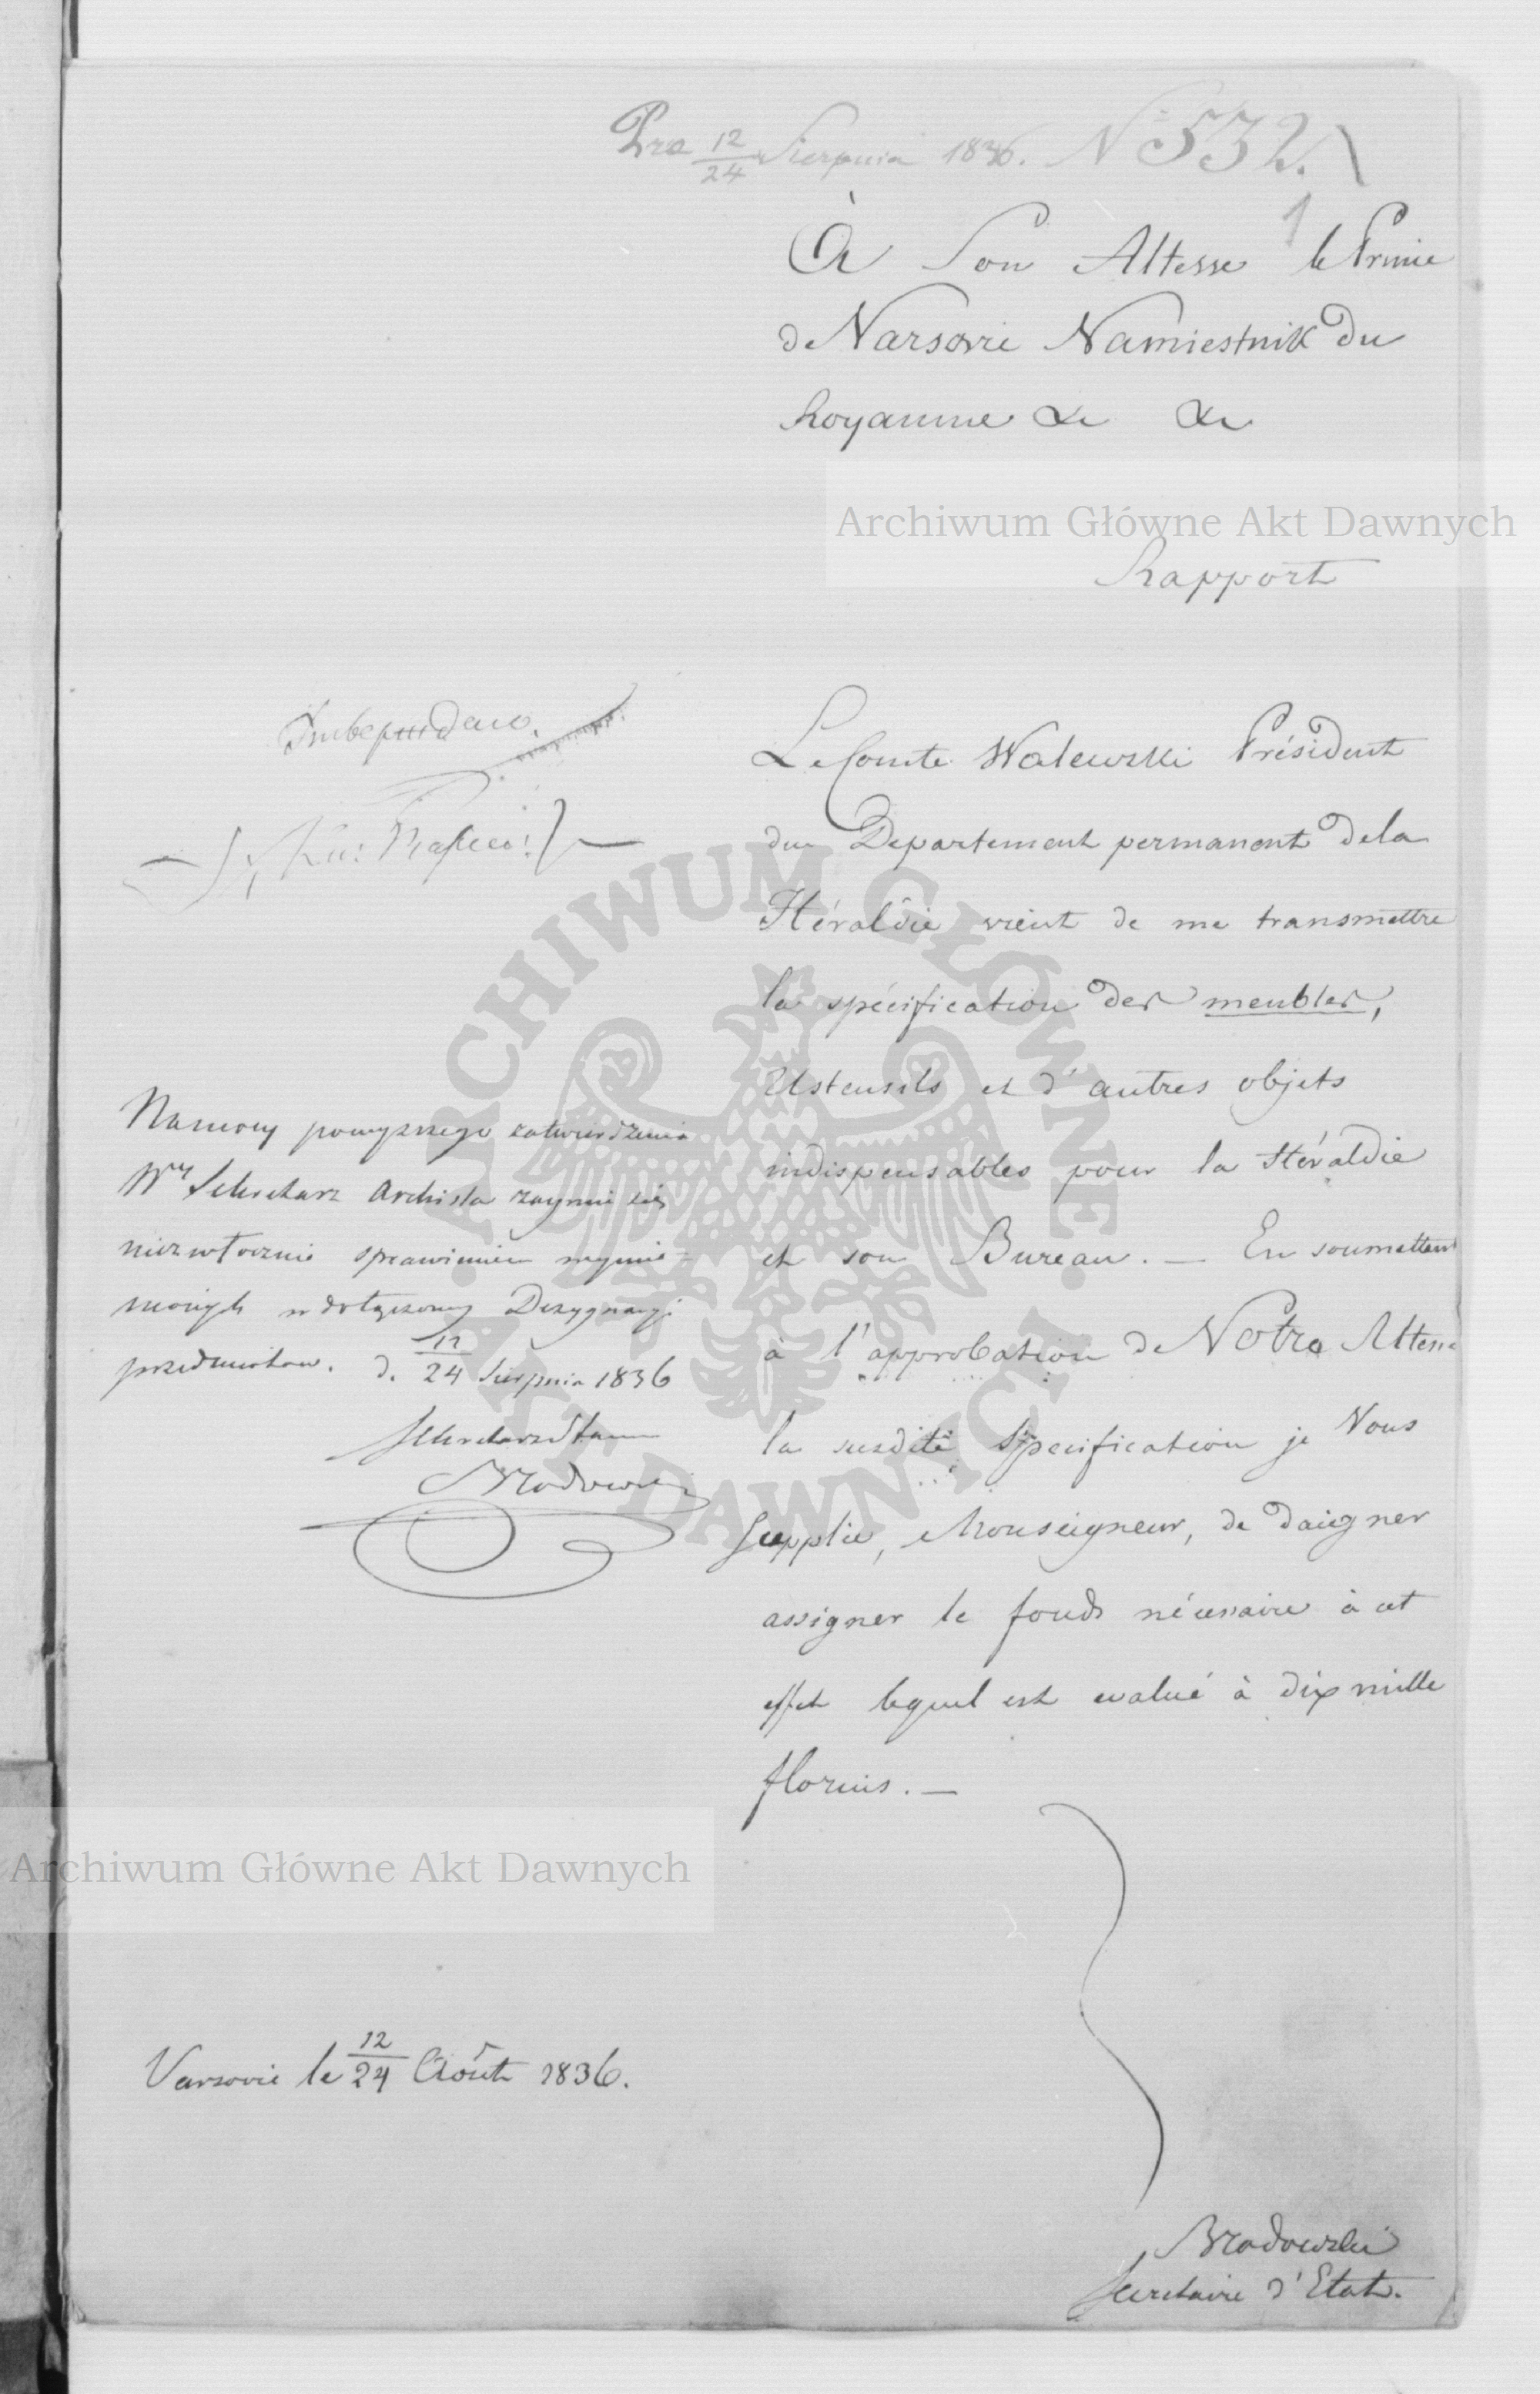 Pra 12/24 Sierpnia 1836. N 532.
1
À Son Altesse le Prince
de Varsovie Namiestnik du
Royaume &c &c
Archiwum Główne Akt Dawnych
Rapport
Le Comte Walewski Président
du Departement permanent de la
Héraldie vient de me transmettre
la spécification des meubles,
Ustensils et d'autres objets
indispensables pour la Héraldie
et son Bureau. — En soumettant
à l'approbation de Votre Altesse
la susdite Specification je Vous
supplie, Monseigneur, de daigner
assigner le fonds nécessaire à cet
effet lequel est evalué à dix mille
florins. —
Утверждаю.
Na mocy powyższego zatwierdzenia
Wny Sekretarz Archista zaymie się
niezwłocznie sprawieniem wymie-
nionych w dołączoney Dezygnacyi
przedmiotow. d. 12/24 Sierpnia 1836
Sekretarz Stanu
Brodowski
ARCHIWUM GŁÓWNE
AKT DAWNYCH
Archiwum Główne Akt Dawnych
Varsovie le 12/24 Août 1836.
Brodowski
Secretaire d'Etat.